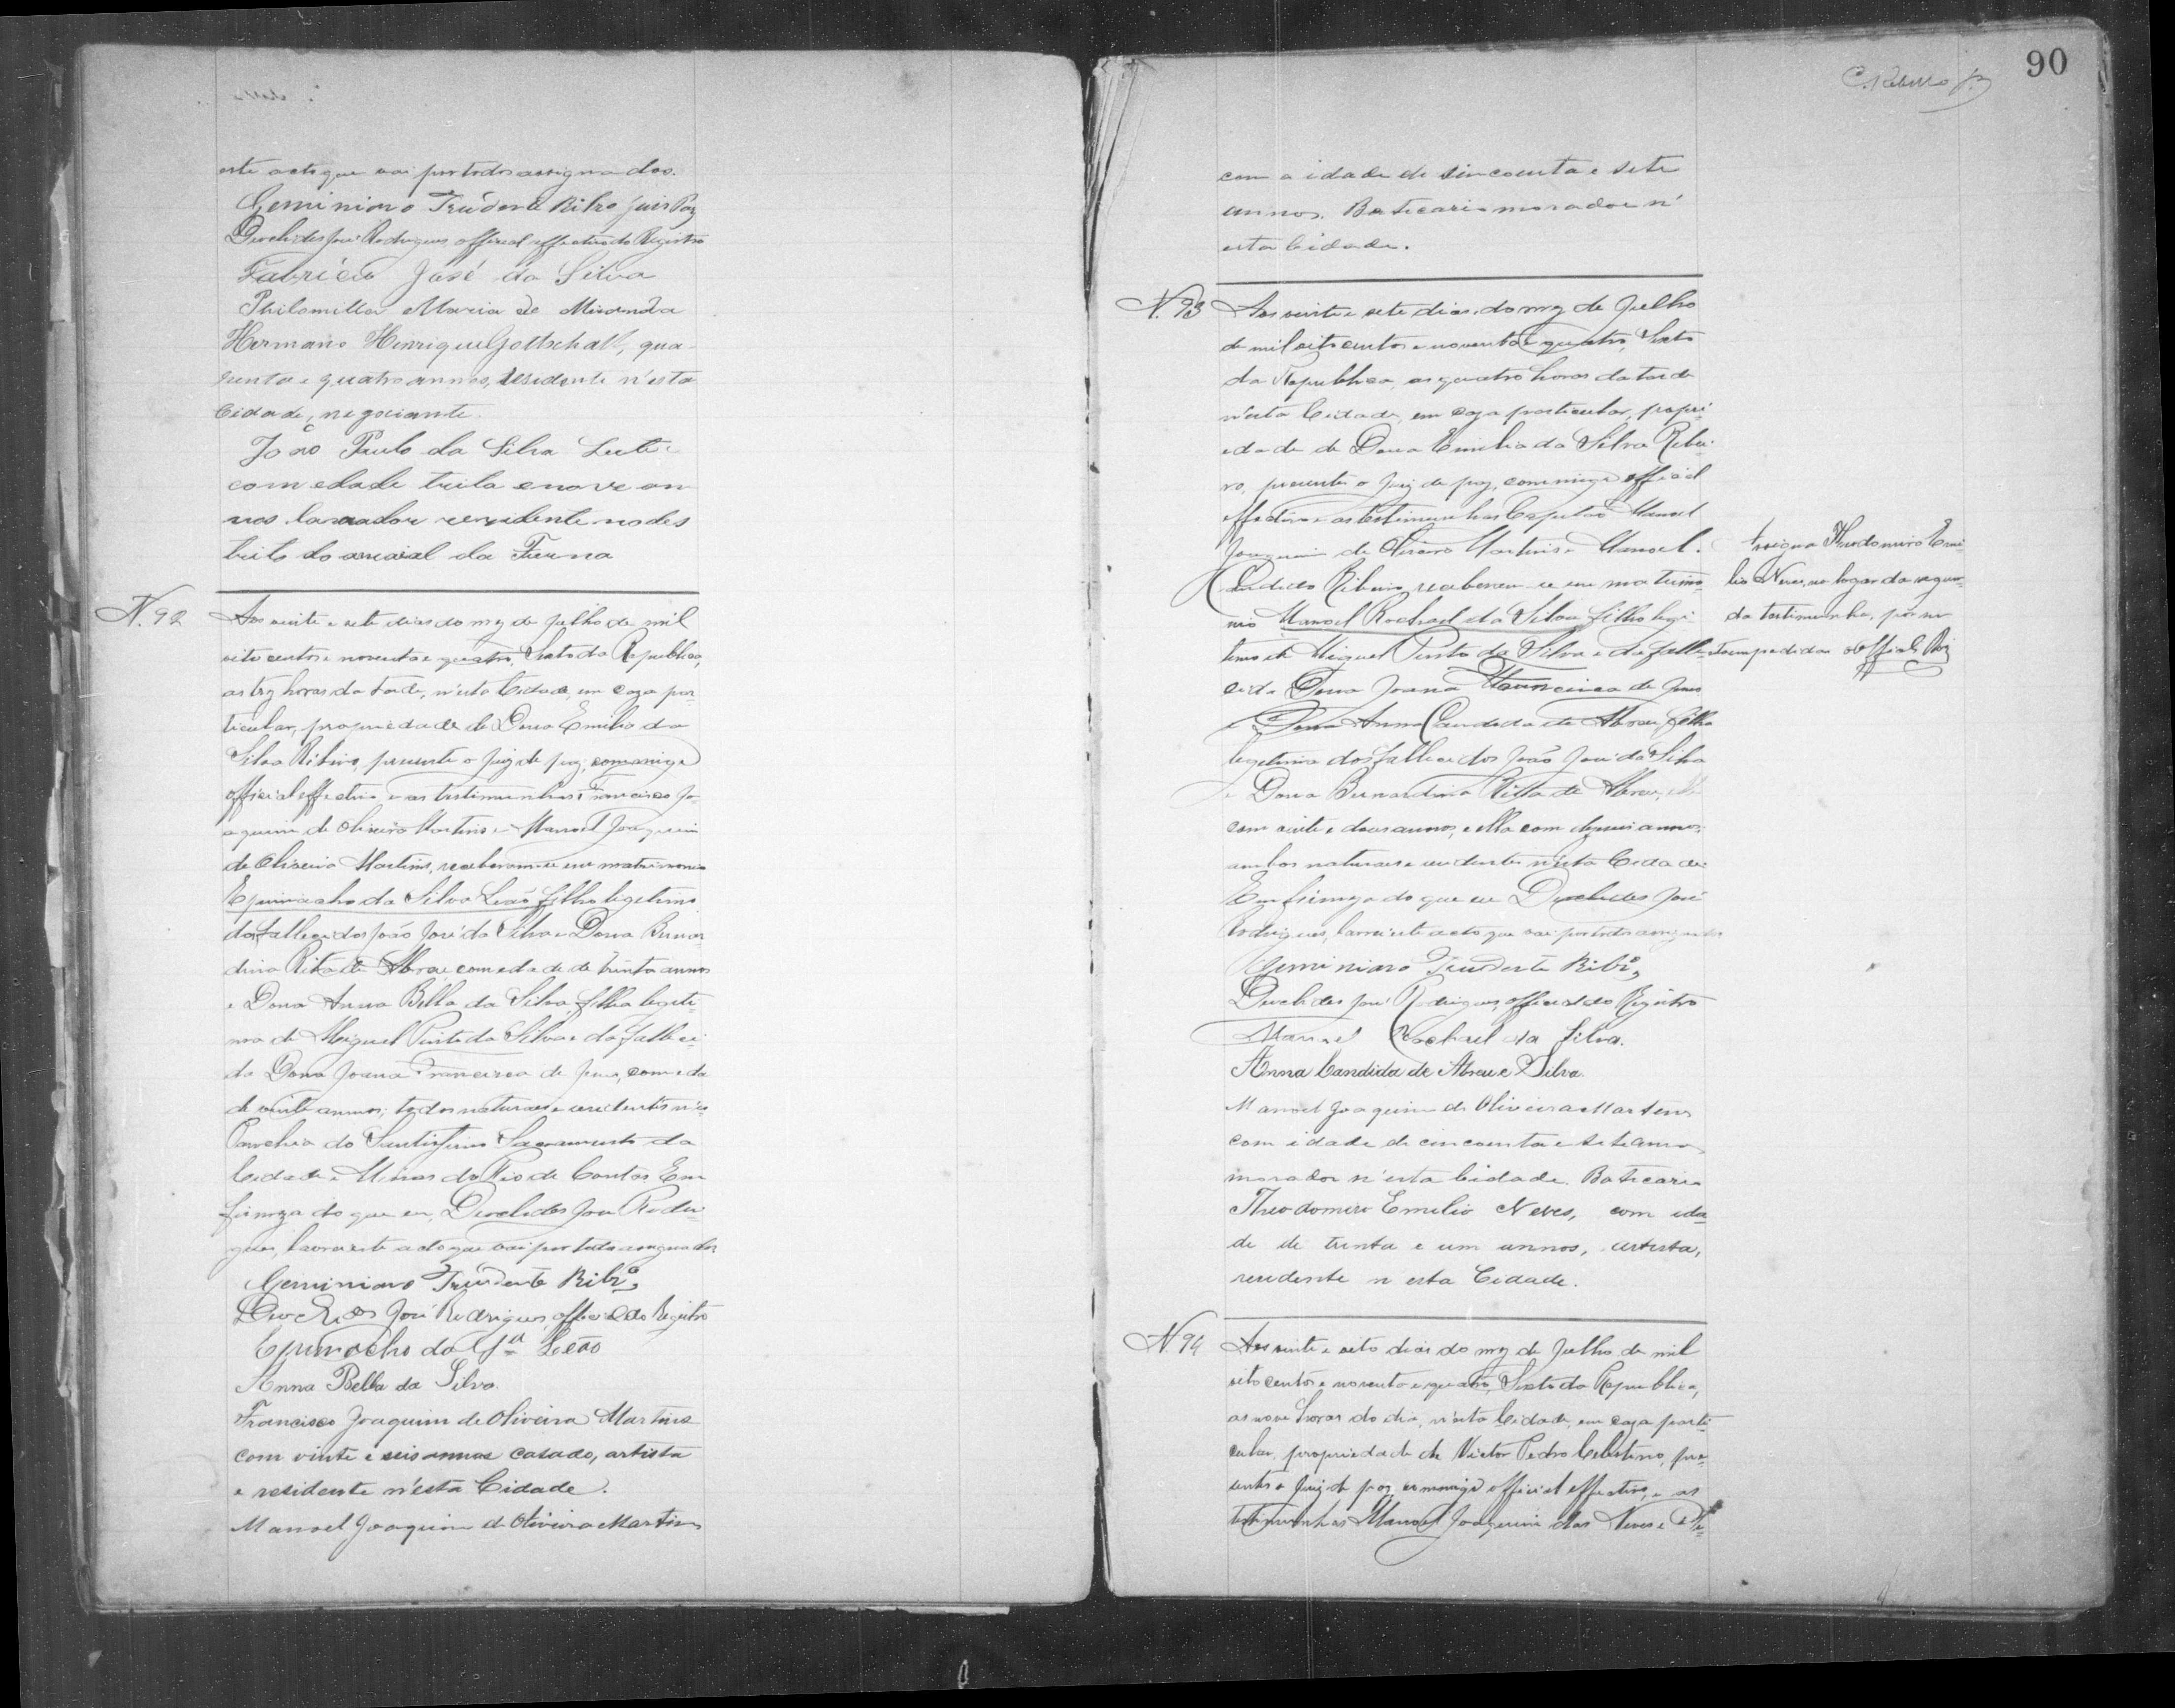 este acto que vai por todos assignados.
Geminiano Trudente Ribro Juis Paz
Deoclides José Rodrigues, official effectivo do Registro
Fabricio José da Silva
Philomilla Maria de Miranda
Hermano Henrique Gottschall, qua-
renta e quatro annos, residente n'esta
Cidade, negociante.
João Paulo da Silva Leite
com edade trinta e nove an
nos lavrador rezidente no des
trito do arraial da Furna
N. 92
Aos vinte e sete dias do mez de Julho de mil
oito centos e noventa e quatro, Sexto da Republica,
as trez horas da tarde, n'esta Cidade, em caza par
ticular, propriedade de Dona Emilia da
Silva Ribeiro, presente o Juiz de paz, commigo
official effectivo, e as testimunhas Francisco Jo-
aquim de Oliveira Martins e Manoel Joaquim
de Oliveira Martins, receberam-se em matrimonio
Epimacho da Silva Leão, filho legitimo
dos fallecidos João José da Silva e Dona Bernar
dina Rita de Abreu, com edade de trinta annos
e Dona Anna Bella da Silva, filha legiti-
ma de Miguel Pinto da Silva e da falleci-
da Dona Joana Francisca de Jesus, com eda
de vinte annos; todos naturaes e residentes n'es
Parochia do Santissimo Sacramento da
Cidade e Minas do Rio de Contas. Em
firmeza do que eu, Deoclides José Rodri
gues, lavrei este acto que vai por todos assignados
Geminiano Trudente Ribrº
Deoclides José Rodrigues, official do Registro
Epimacho da Sª Leão
Anna Bella da Silva.
Francisco Joaquim de Oliveira Martins
com vinte e seis annos casado, artista
e residente n'esta Cidade.
Manoel Joaquim de Oliveira Martins
90
C. Rebello
com a idade de sincoenta e sete
annos. Boticario morador n'
esta Cidade.
N. 93
Aos vinte e sete dias, do mez de Julho
de mil oito centos e noventa e quatro, Sexto
da Republica, as quatro horas da tarde
n'esta Cidade, em caza particular, propri-
edade de Dona Emilia da Silva Ribei-
ro, presente o Juiz de paz, commigo official
effectivo e as testimunhas Capitão Manoel
Joaquim de Oliveira Martins e Manoel
Candido Ribeiro, receberam-se em matrimo
nio Manoel Rachael da Silva, filho legi-
timo de Miguel Pinto da Silva e da falle-
cida Dona Joana Francisca de Jesus
e Dona Anna Candida de Abreu, filha
legitima dos fallecidos João José da Silva
e Dona Bernardina Ritta de Abreu,
com vinte e dous annos, e ella com dezeseis annos,
ambos naturaes e residentes n'esta Cidade
Em firmeza do que eu Deoclides José
Rodrigues, lavrei este acto que vai por todos assignados
Geminiano Trudente Ribrº
Deoclides José Rodrigues, official do Registro
Manoel Rachael da Silva.
Anna Candida de Abreu e Silva.
Manoel Joaquim de Oliveira Martins
com idade de cincoenta e sete annos
morador n'esta Cidade. Boticario
Theodomiro Emilio Neves, com ida-
de de trinta e um annos, artista,
residente n'esta Cidade.
Assigna Theodomiro Emi-
lio Neves, no logar da segun-
da testimunha, por ser
impedida. o Official Roiz
N. 94
Aos vinte e oito dias do mez de Julho de mil
oito centos e noventa e quatro, Sexto da Republica,
as nove horas do dia, n'esta Cidade, em caza parti-
cular, propriedade de Victor Pedro Celestino, pre-
sente o Juiz de paz, commigo official effectivo, e as
testimunhas Manoel Joaquim das Neves e